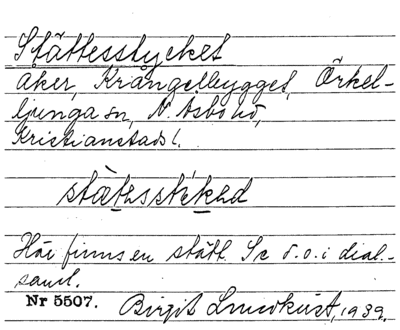 Stättesstycket
åker, Krångelbygget, Örkel-
ljunga sn, N. Åsbo hd,
Kristianstads l.
stätesstýked
Här finns en stätt. Se d.o. i dial.-
saml.
Nr 5507. Birgit Lundkvist, 1932.